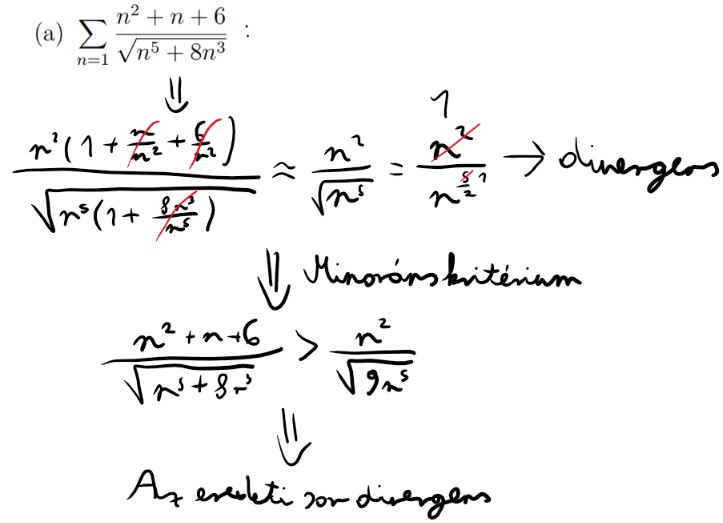 (a) \sum_{n=1} \frac{n^2 + n + 6}{\sqrt{n^5 + 8n^3}} :
⇓
\frac{n^2 (1 + \frac{n}{n^2} + \frac{6}{n^2})}{\sqrt{n^5 (1 + \frac{8n^3}{n^5})}} ≈ \frac{n^2}{\sqrt{n^5}} = \frac{n^2}{n^{\frac{5}{2}}} 1 1 → divergens
⇓ Minoráns kritérium
\frac{n^2 + n + 6}{\sqrt{n^5 + 8n^3}} > \frac{n^2}{\sqrt{9n^5}}
⇓
Az eredeti sor divergens